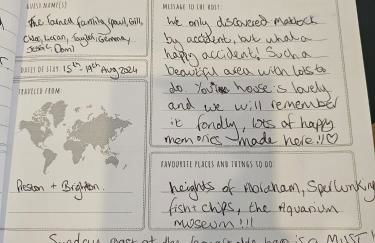 GUEST NAME(S)
The Tarrant family, Paul, Gill,
Chloe, Kieran, Taylor, Gemma,
Jess & Dom!
DATES OF STAY: 15th - 19th Aug 2024
TRAVELED FROM:
Preston + Brighton.
MESSAGE TO THE HOST:
We only discovered Matlock
by accident, but what a
happy accident! Such a
beautiful area with lots to
do. Your house is lovely
and we will remember
it fondly, lots of happy
memories made here!!♡
FAVOURITE PLACES AND THINGS TO DO:
heights of Abraham, Spelunking
fish + chips, the Aquarium
museum!!!
Sunday roast at the